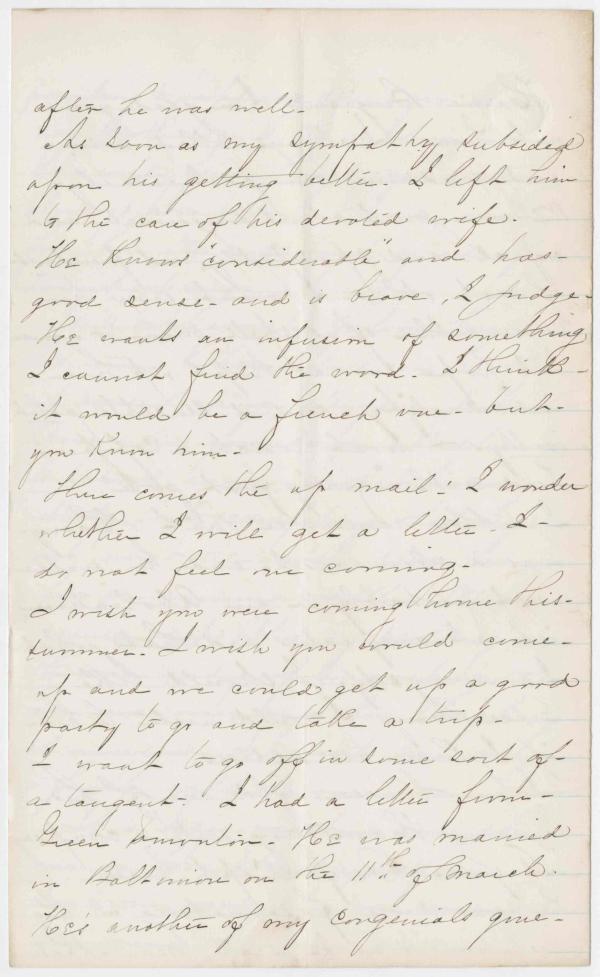 after he was well-
As soon as my sympathy subsided
upon his getting better. I left him
to the care of his devoted wife.
He knows "considerable" and has-
good sense- and is brave, I judge-
He wants an infusion of something
I cannot find the word. I think-
it would be a french one- but-
you know him-
Here comes the up mail! I wonder
whether I will get a letter. I-
do not feel one coming-
I wish you were coming home this-
summer. I wish you would come-
up and we could get up a good
party to go and take a trip-
I want to go off in some sort of-
a tangent- I had a letter from-
Green . He was married
in Baltimore on the 11th of March.
He's another of my congenials gone-